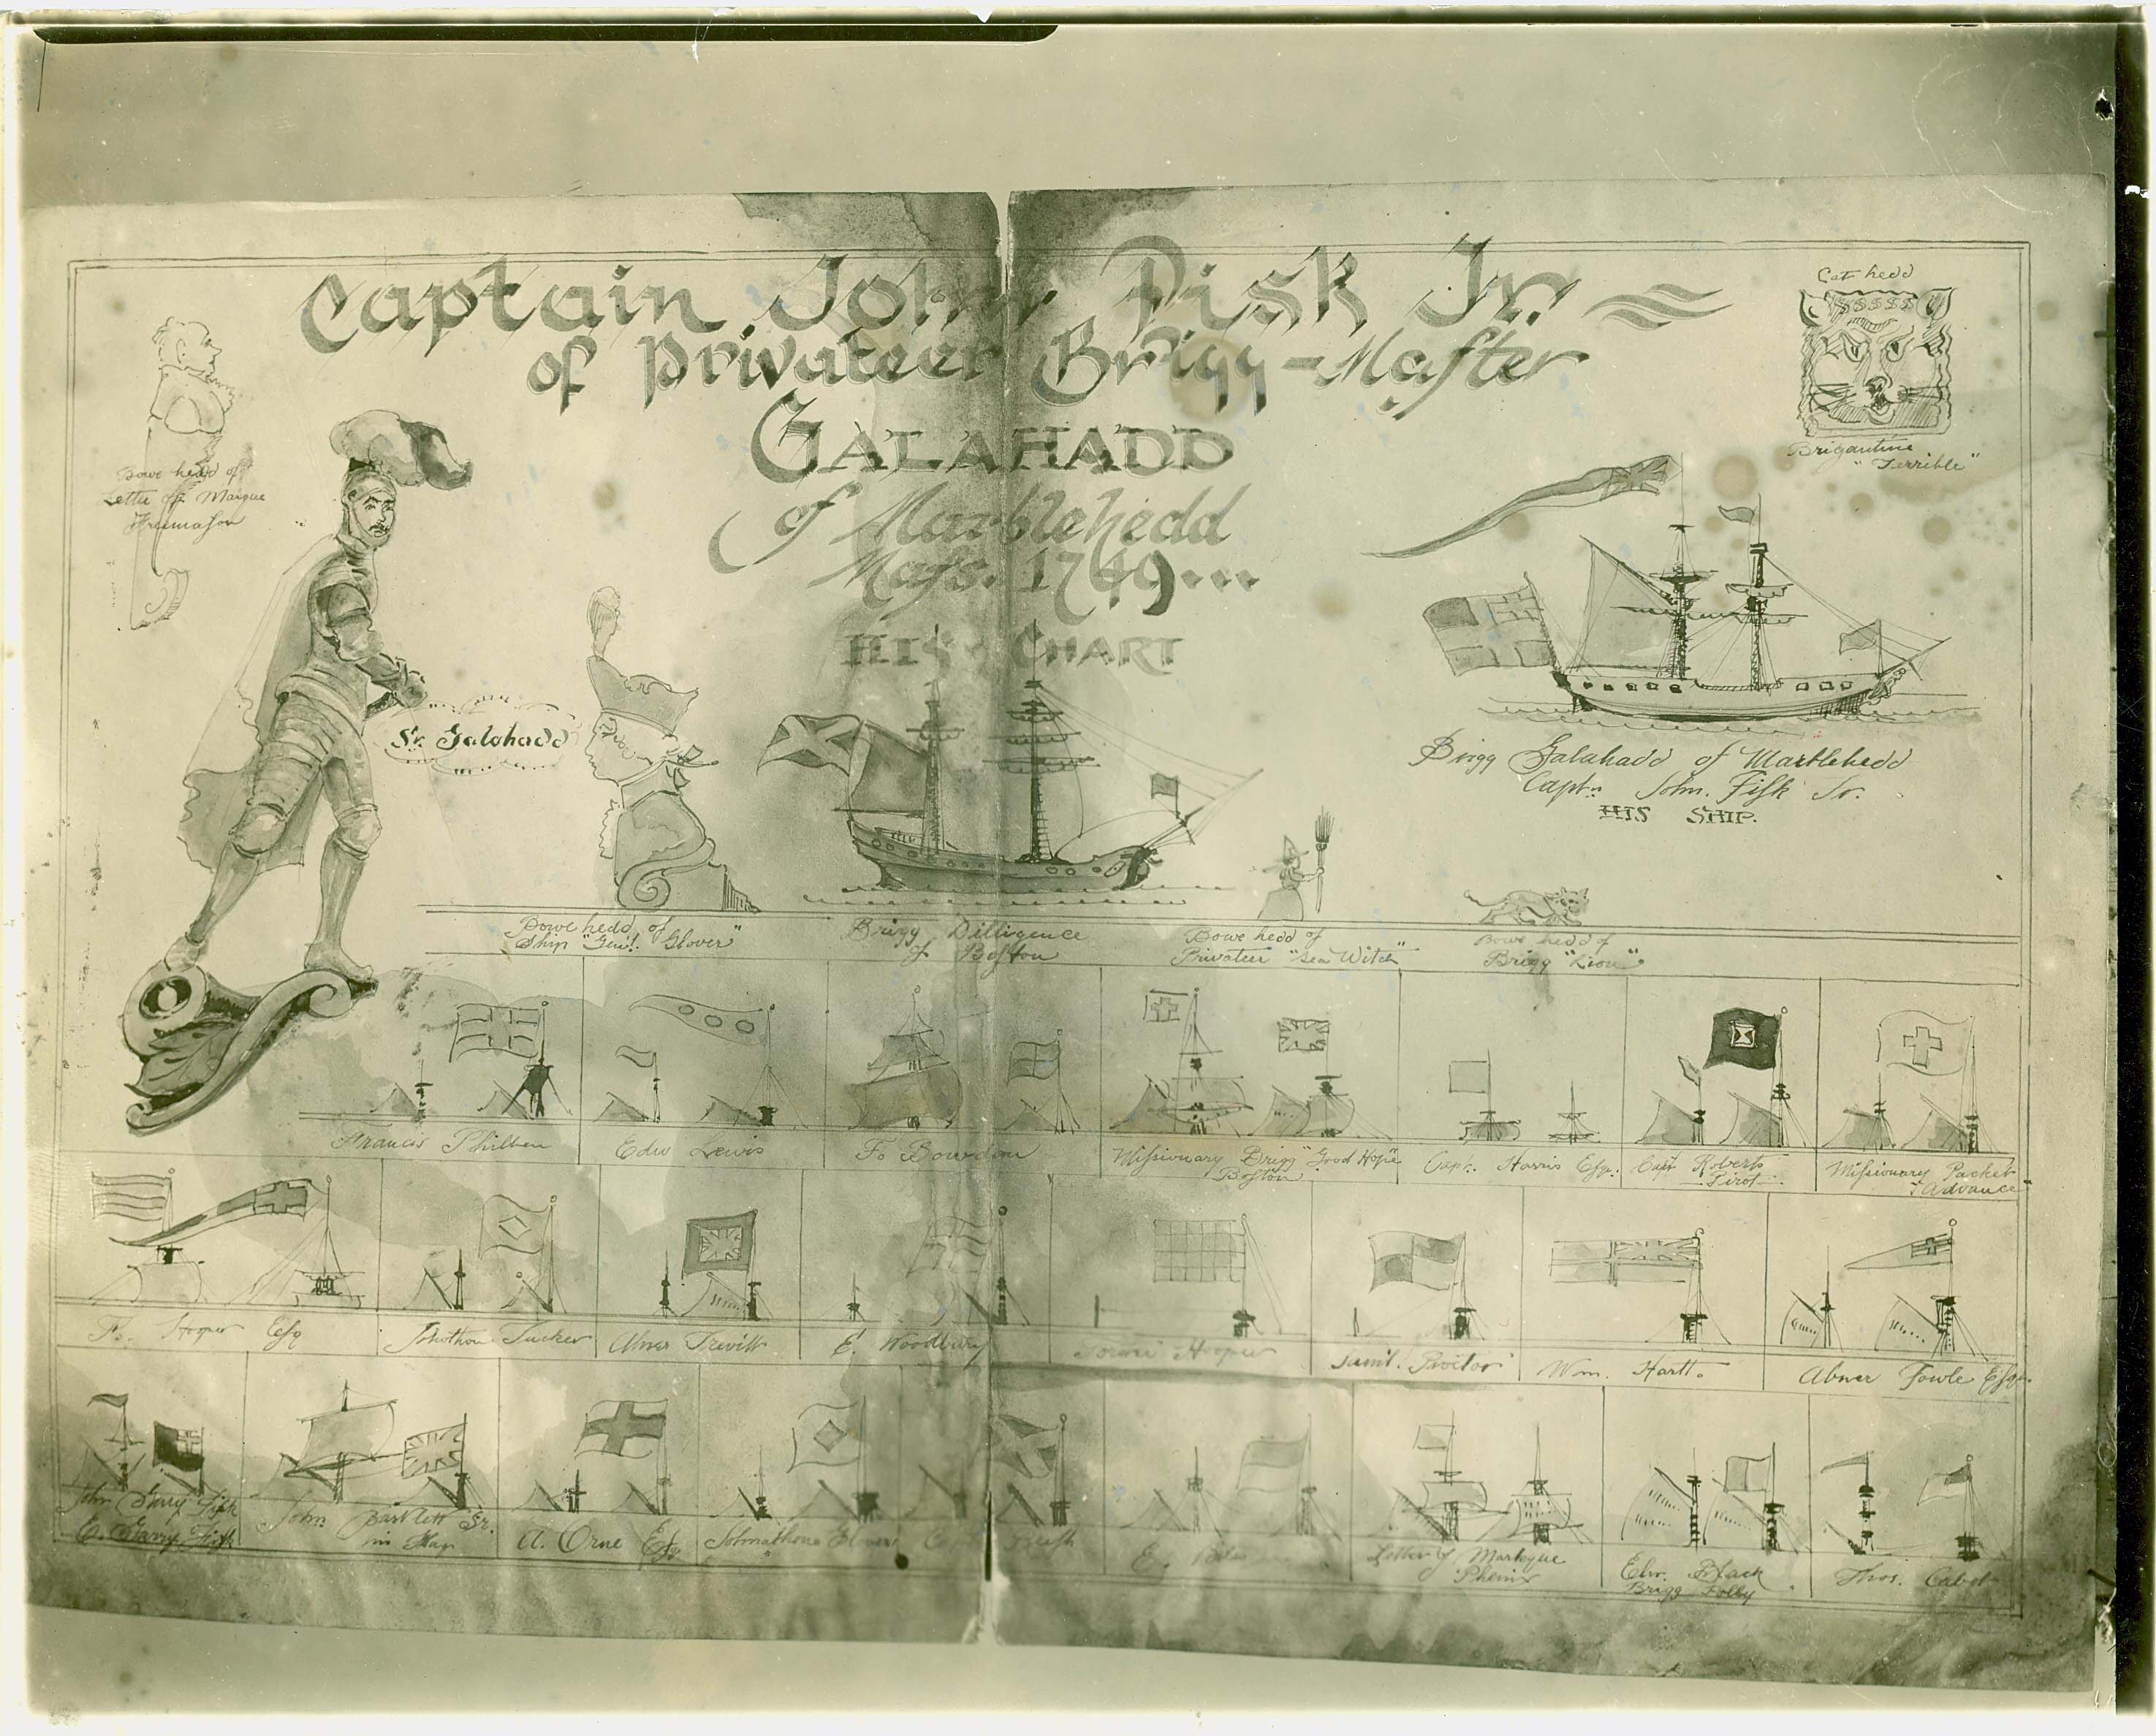 Captain John Fisk Jr.
of Privateer Brigg-Master
GALAHADD
of Marblehedd
Mass. 1749...
HIS CHART
Cat hedd
Brigantine
"Terrible"
Bowe hedd of
Letter of Marque
Freemason
Sr. Galahadd
Brigg Galahadd of Marblehedd
Capt. John. Fisk Jr.
HIS SHIP.
Bowe hedd of
Ship "Genl. Glover"
Brigg Dilligence
of Boston
Bowe hedd of
Privateer "Sea Witch"
Bowe hedd of
Brigg "Lion"
Francis Philben
Edw Lewis
Fo Bowdon
Missionary Brigg "Good Hope"
Boston
Capt. Harris Esq.
Capt Roberts
Missionary Packet
"Advance"
Hooper Esq
Johothon Tucker
Abner Trevitt
E. Woodbury
Hooper
Saml. Proctor
Wm. Hartt.
Abner Fowle Esqr.
John Gerry Fisk
E. Garry Fisk
John Bartlett Sr.
his Flag
A. Orne Esq
Johnathone
E.
Letter of Markque
Phenix
Black
Brigg Polly
Thos. Cabot